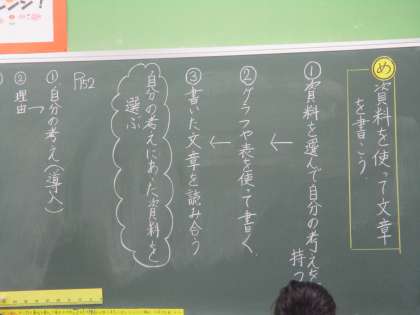 め 資料を使って文章
を書こう
①資料を選んで自分の考えを
持つ
②グラフや表を使って書く
③書いた文章を読み合う
自分の考えにあった資料を
選ぶ
P152
①自分の考え(導入)
②理由